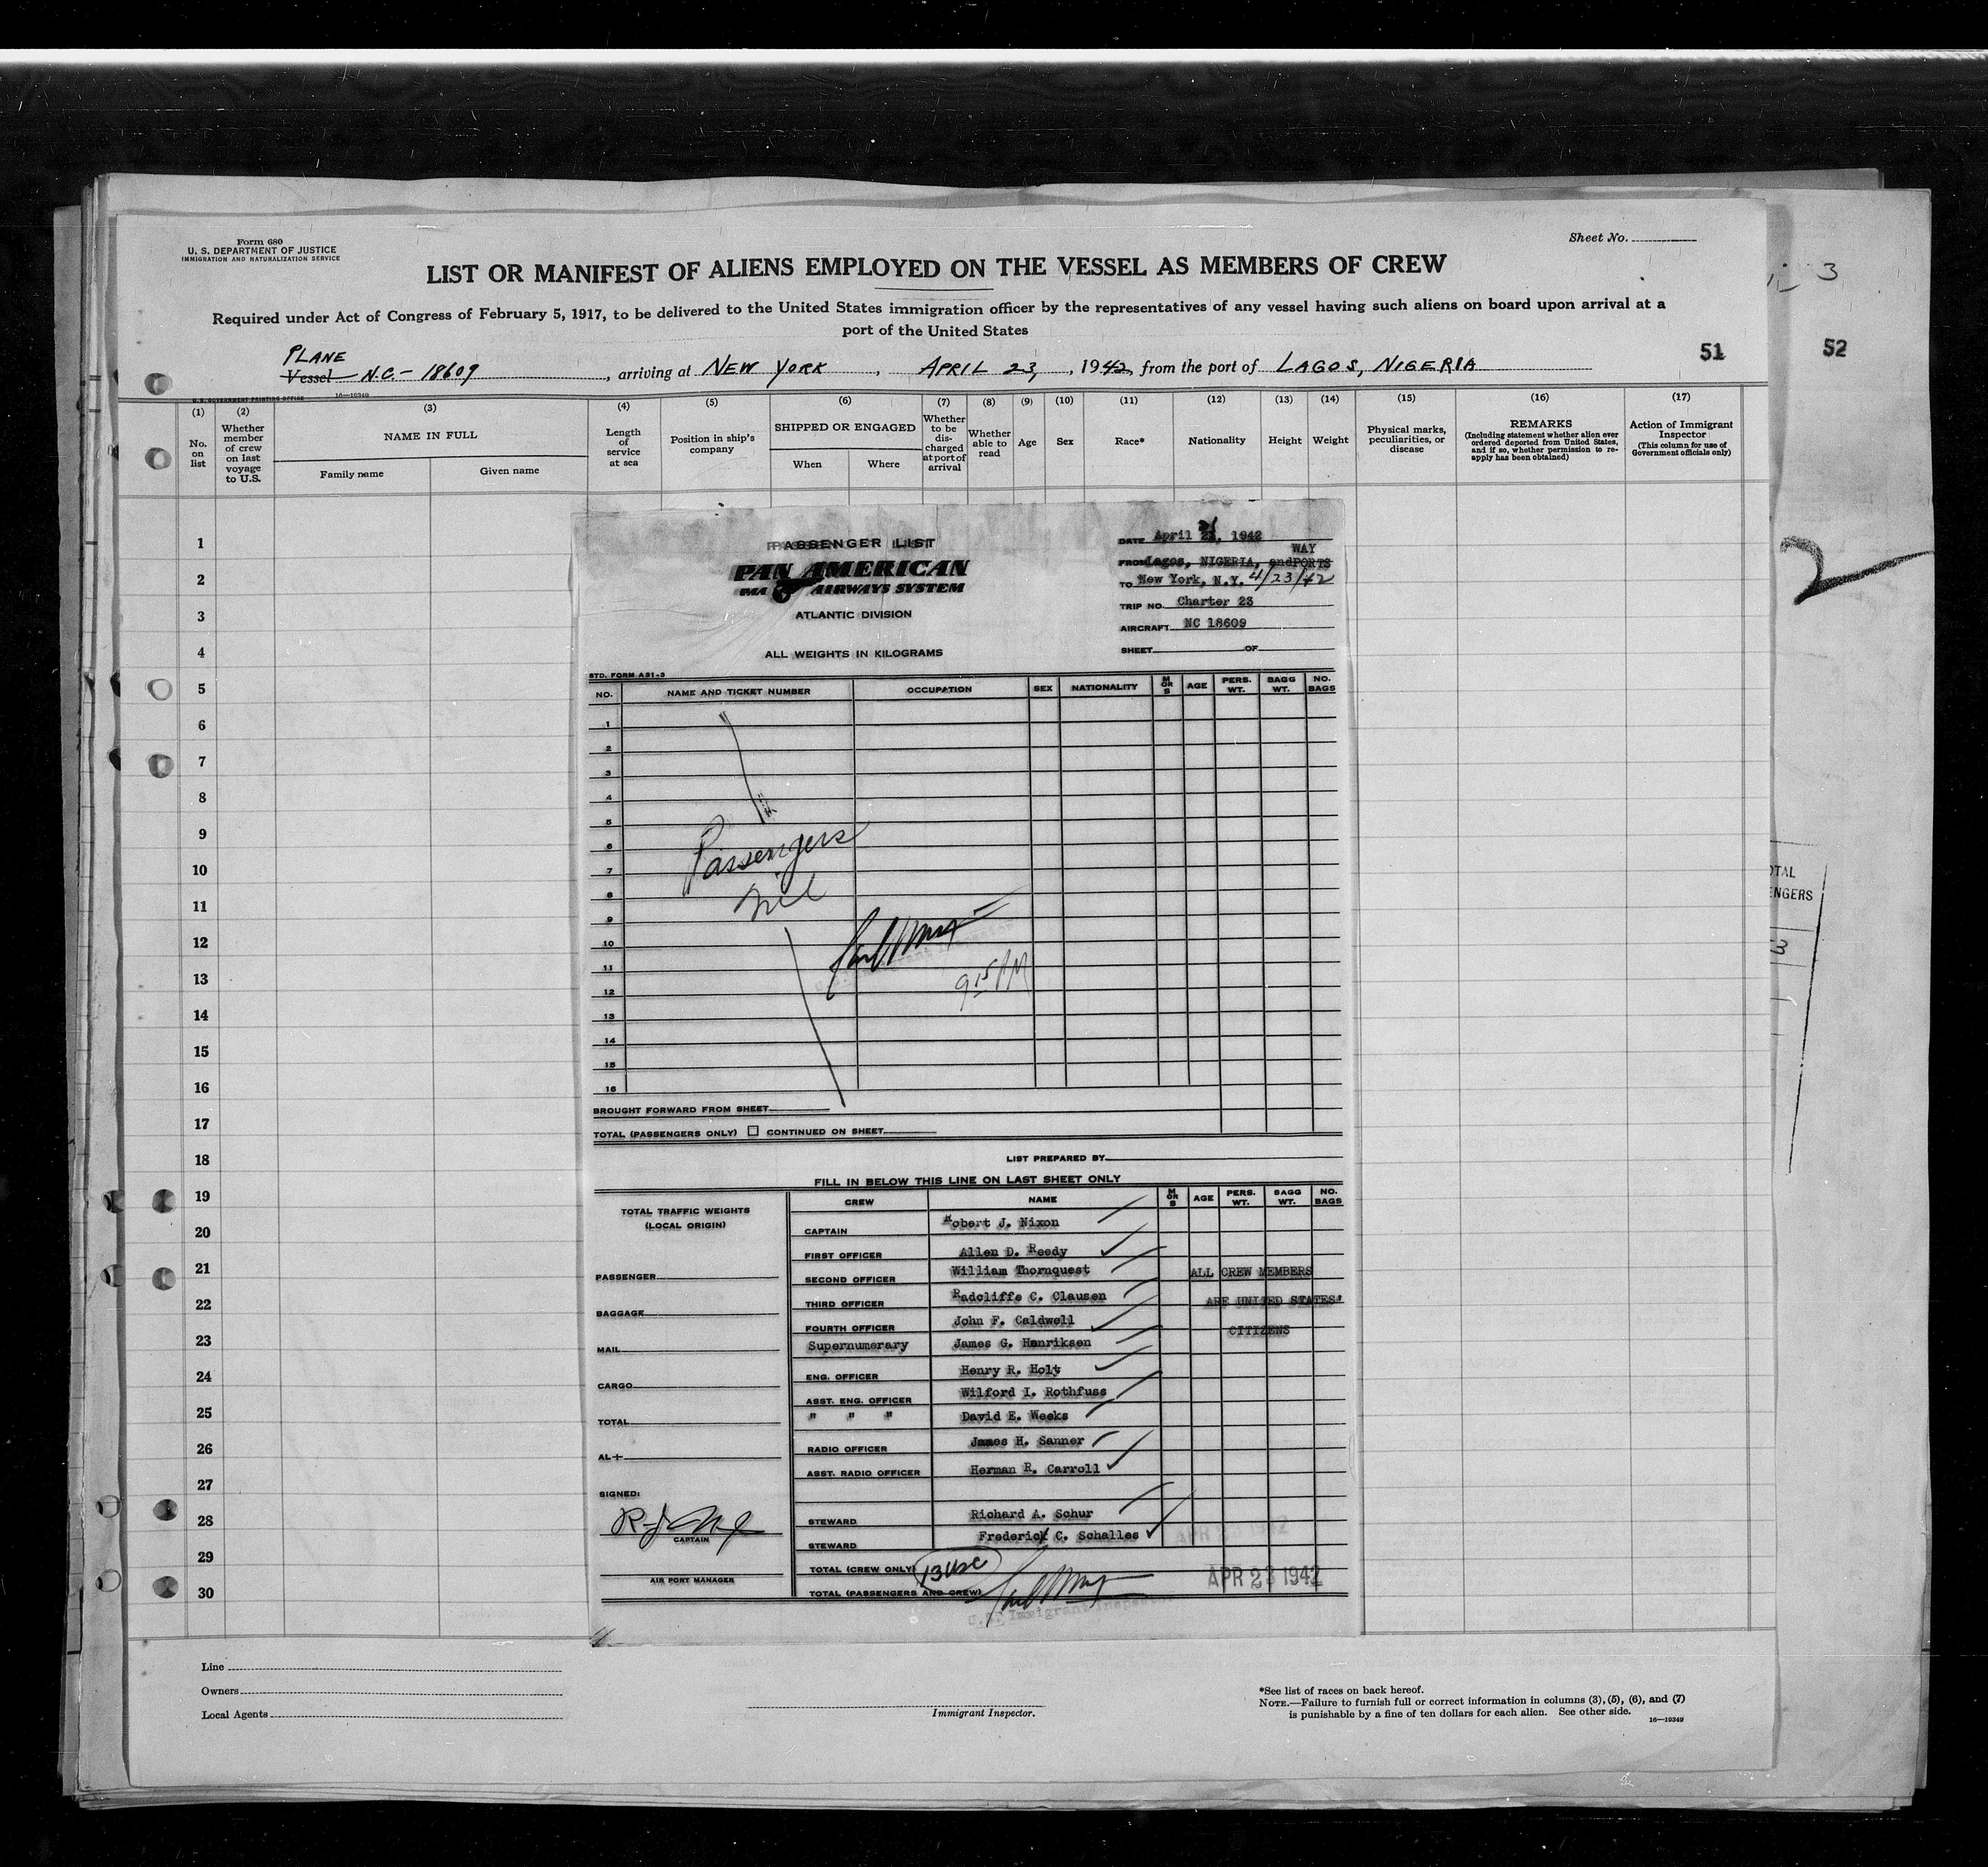 Form 680
U. S. DEPARTMENT OF JUSTICE
IMMIGRATION AND NATURALIZATION SERVICE
Sheet No.
LIST OR MANIFEST OF ALIENS EMPLOYED ON THE VESSEL AS MEMBERS OF CREW
Required under Act of Congress of February 5, 1917, to be delivered to the United States immigration officer by the representatives of any vessel having such aliens on board upon arrival at a
port of the United States
3
51
52
PLANE
Vessel N.C.- 18609, arriving at NEW YORK, APRIL 23, 1942, from the port of LAGOS, NIGERIA
U. S. GOVERNMENT PRINTING OFFICE 16—19349
(1) (2) (3) (4) (5) (6) (7) (8) (9) (10) (11) (12) (13) (14) (15) (16) (17)
No. on list
Whether member of crew on last voyage to U.S.
NAME IN FULL
Family name
Given name
Length of service at sea
Position in ship's company
SHIPPED OR ENGAGED
When
Where
Whether to be discharged at port of arrival
Whether able to read
Age
Sex
Race*
Nationality
Height
Weight
Physical marks, peculiarities, or disease
REMARKS
(Including statement whether alien ever ordered deported from United States, and if so, whether permission to re-apply has been obtained)
Action of Immigrant Inspector
(This column for use of Government officials only)
1
2
3
4
5
6
7
8
9
10
11
12
13
14
15
16
17
18
19
20
21
22
23
24
25
26
27
28
29
30
PASSENGER LIST
PAN AMERICAN
PAA AIRWAYS SYSTEM
ATLANTIC DIVISION
ALL WEIGHTS IN KILOGRAMS
DATE April 21, 1942
WAY
FROM Lagos, NIGERIA, and PORTS
TO New York, N.Y. 4/23/42
TRIP NO. Charter 23
AIRCRAFT NC 18609
SHEET OF
2
STD. FORM A31-3
NO. NAME AND TICKET NUMBER OCCUPATION SEX NATIONALITY M OR S AGE PERS. WT. BAGG WT. NO. BAGS
1
2
3
4
5
6
7
8
9
10
11
12
13
14
15
16
Passengers
Nil
9 15 PM
BROUGHT FORWARD FROM SHEET
TOTAL (PASSENGERS ONLY) CONTINUED ON SHEET
LIST PREPARED BY
FILL IN BELOW THIS LINE ON LAST SHEET ONLY
TOTAL TRAFFIC WEIGHTS
(LOCAL ORIGIN)
PASSENGER
BAGGAGE
MAIL
CARGO
TOTAL
AL+
SIGNED:
CAPTAIN
AIR PORT MANAGER
CREW NAME M OR S AGE PERS. WT. BAGG WT. NO. BAGS
CAPTAIN Robert J. Nixon
FIRST OFFICER Allen D. Reedy
SECOND OFFICER William Thornquest
THIRD OFFICER Radcliffe C. Clausen
FOURTH OFFICER John F. Caldwell
Supernumerary James G. Henriksen
ENG. OFFICER Henry R. Holt
ASST. ENG. OFFICER Wilford I. Rothfuss
" " " David E. Weeks
RADIO OFFICER James H. Sanner
ASST. RADIO OFFICER Herman R. Carroll
STEWARD Richard A. Schur
STEWARD Frederick C. Schalles
ALL CREW MEMBERS
ARE UNITED STATES'
CITIZENS
TOTAL (CREW ONLY) 13 USC
TOTAL (PASSENGERS AND CREW)
APR 23 1942
APR 23 1942
U.S. Immigrant Inspector
Line
Owners
Local Agents
Immigrant Inspector.
*See list of races on back hereof.
NOTE.—Failure to furnish full or correct information in columns (3), (5), (6), and (7)
is punishable by a fine of ten dollars for each alien. See other side.
16—19349